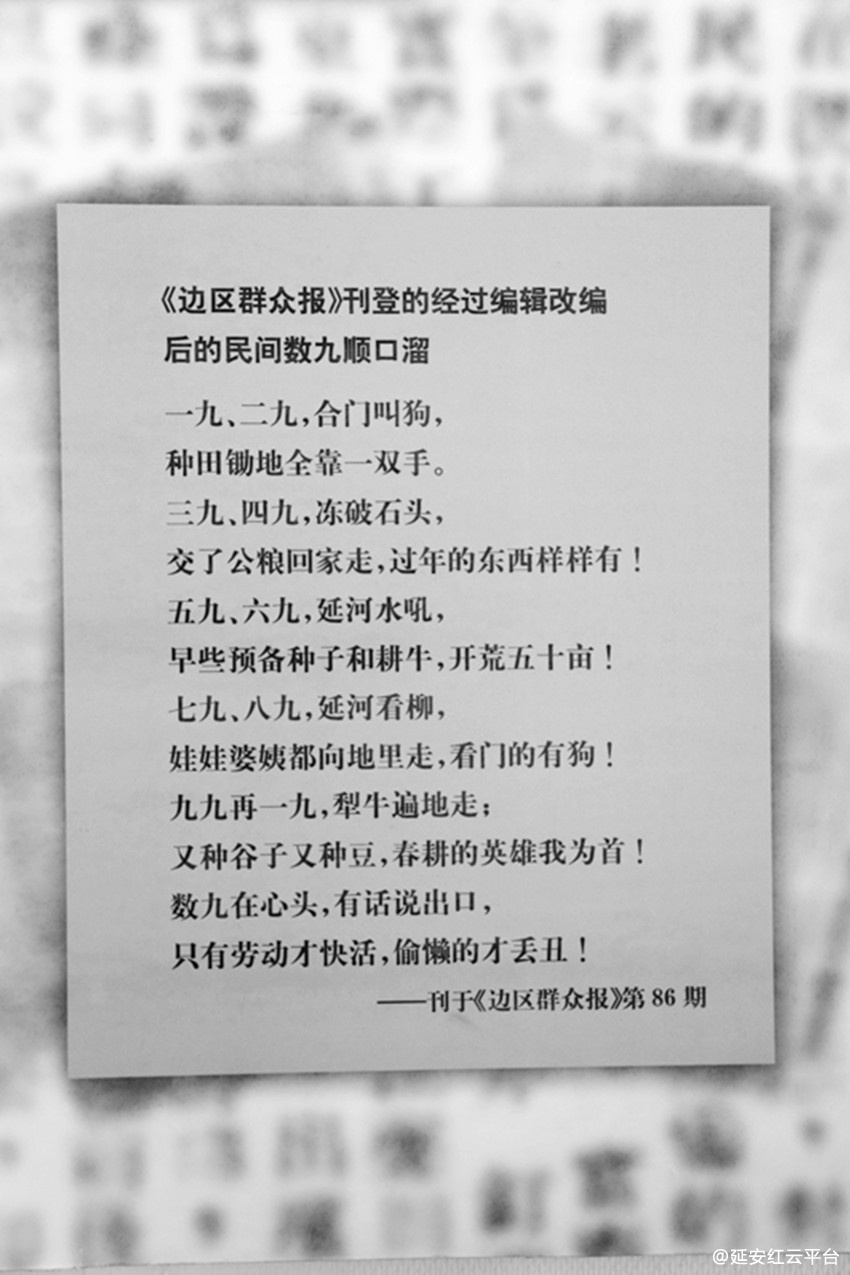 《边区群众报》刊登的经过编辑改编
后的民间数九顺口溜
一九、二九,合门叫狗,
种田锄地全靠一双手。
三九、四九,冻破石头,
交了公粮回家走,过年的东西样样有!
五九、六九,延河水吼,
早些预备种子和耕牛,开荒五十亩!
七九、八九,延河看柳,
娃娃婆姨都向地里走,看门的有狗!
九九再一九,犁牛遍地走;
又种谷子又种豆,春耕的英雄我为首!
数九在心头,有话说出口,
只有劳动才快活,偷懒的才丢丑!
——刊于《边区群众报》第 86 期
@延安红云平台